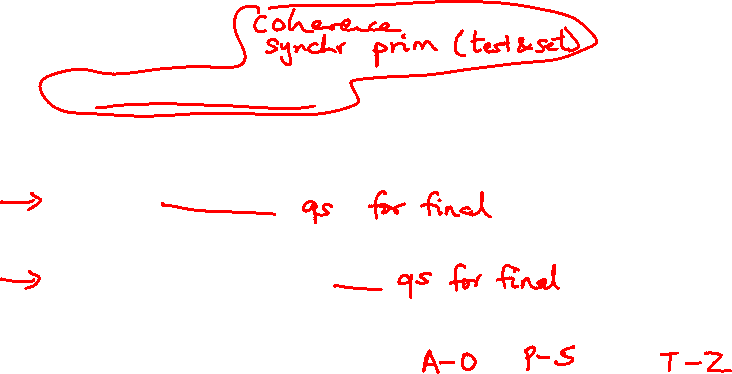 coherence
synchr prim (test&set)
qs for final
qs for final
A-O P-S T-Z